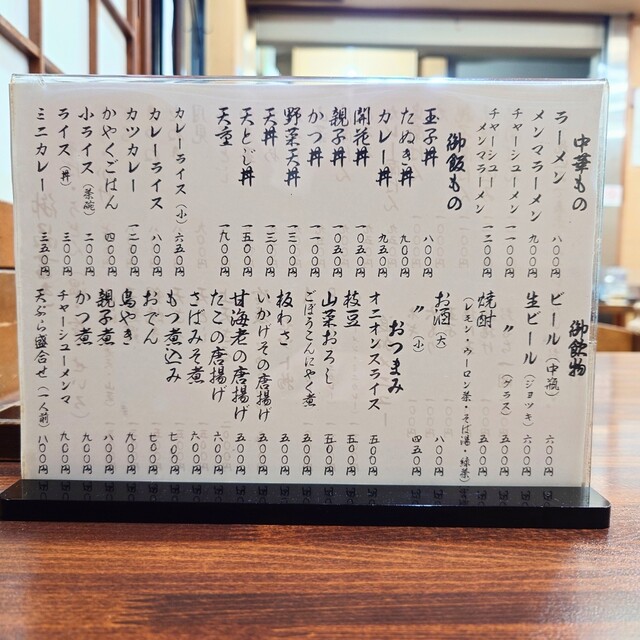 中華もの
ラーメン 八〇〇円
メンマラーメン 九〇〇円
チャーシューメン 一一〇〇円
チャーシューメンマラーメン 一二〇〇円
御飯もの
玉子丼 八〇〇円
たぬき丼 九〇〇円
カレー丼 九五〇円
開花丼 一〇五〇円
親子丼 一〇五〇円
かつ丼 一一〇〇円
野菜天丼 一三〇〇円
天丼 一三〇〇円
天とじ丼 一五〇〇円
天重 一九〇〇円
カレーライス(小) 六五〇円
カレーライス 八〇〇円
カツカレー 一二〇〇円
かやくごはん 四〇〇円
小ライス(茶碗) 二〇〇円
ライス(丼) 三〇〇円
ミニカレー 三五〇円
御飲物
ビール(中瓶) 六〇〇円
生ビール(ジョッキ) 六〇〇円
〃(グラス) 四五〇円
焼酎 五〇〇円
(レモン・ウーロン茶・そば湯・緑茶)
お酒(大) 八〇〇円
〃(小) 四五〇円
おつまみ
オニオンスライス 五〇〇円
枝豆 五〇〇円
山菜おろし 五〇〇円
ごぼうこんにゃく煮 五〇〇円
板わさ 五〇〇円
いかげその唐揚げ 五〇〇円
甘海老の唐揚げ 五〇〇円
たこの唐揚げ 六〇〇円
さばみそ煮 六〇〇円
もつ煮込み 七〇〇円
おでん 七〇〇円
鳥やき 九〇〇円
親子煮 八〇〇円
かつ煮 九〇〇円
チャーシューメンマ 九〇〇円
天ぷら盛合せ(一人前) 一八〇〇円